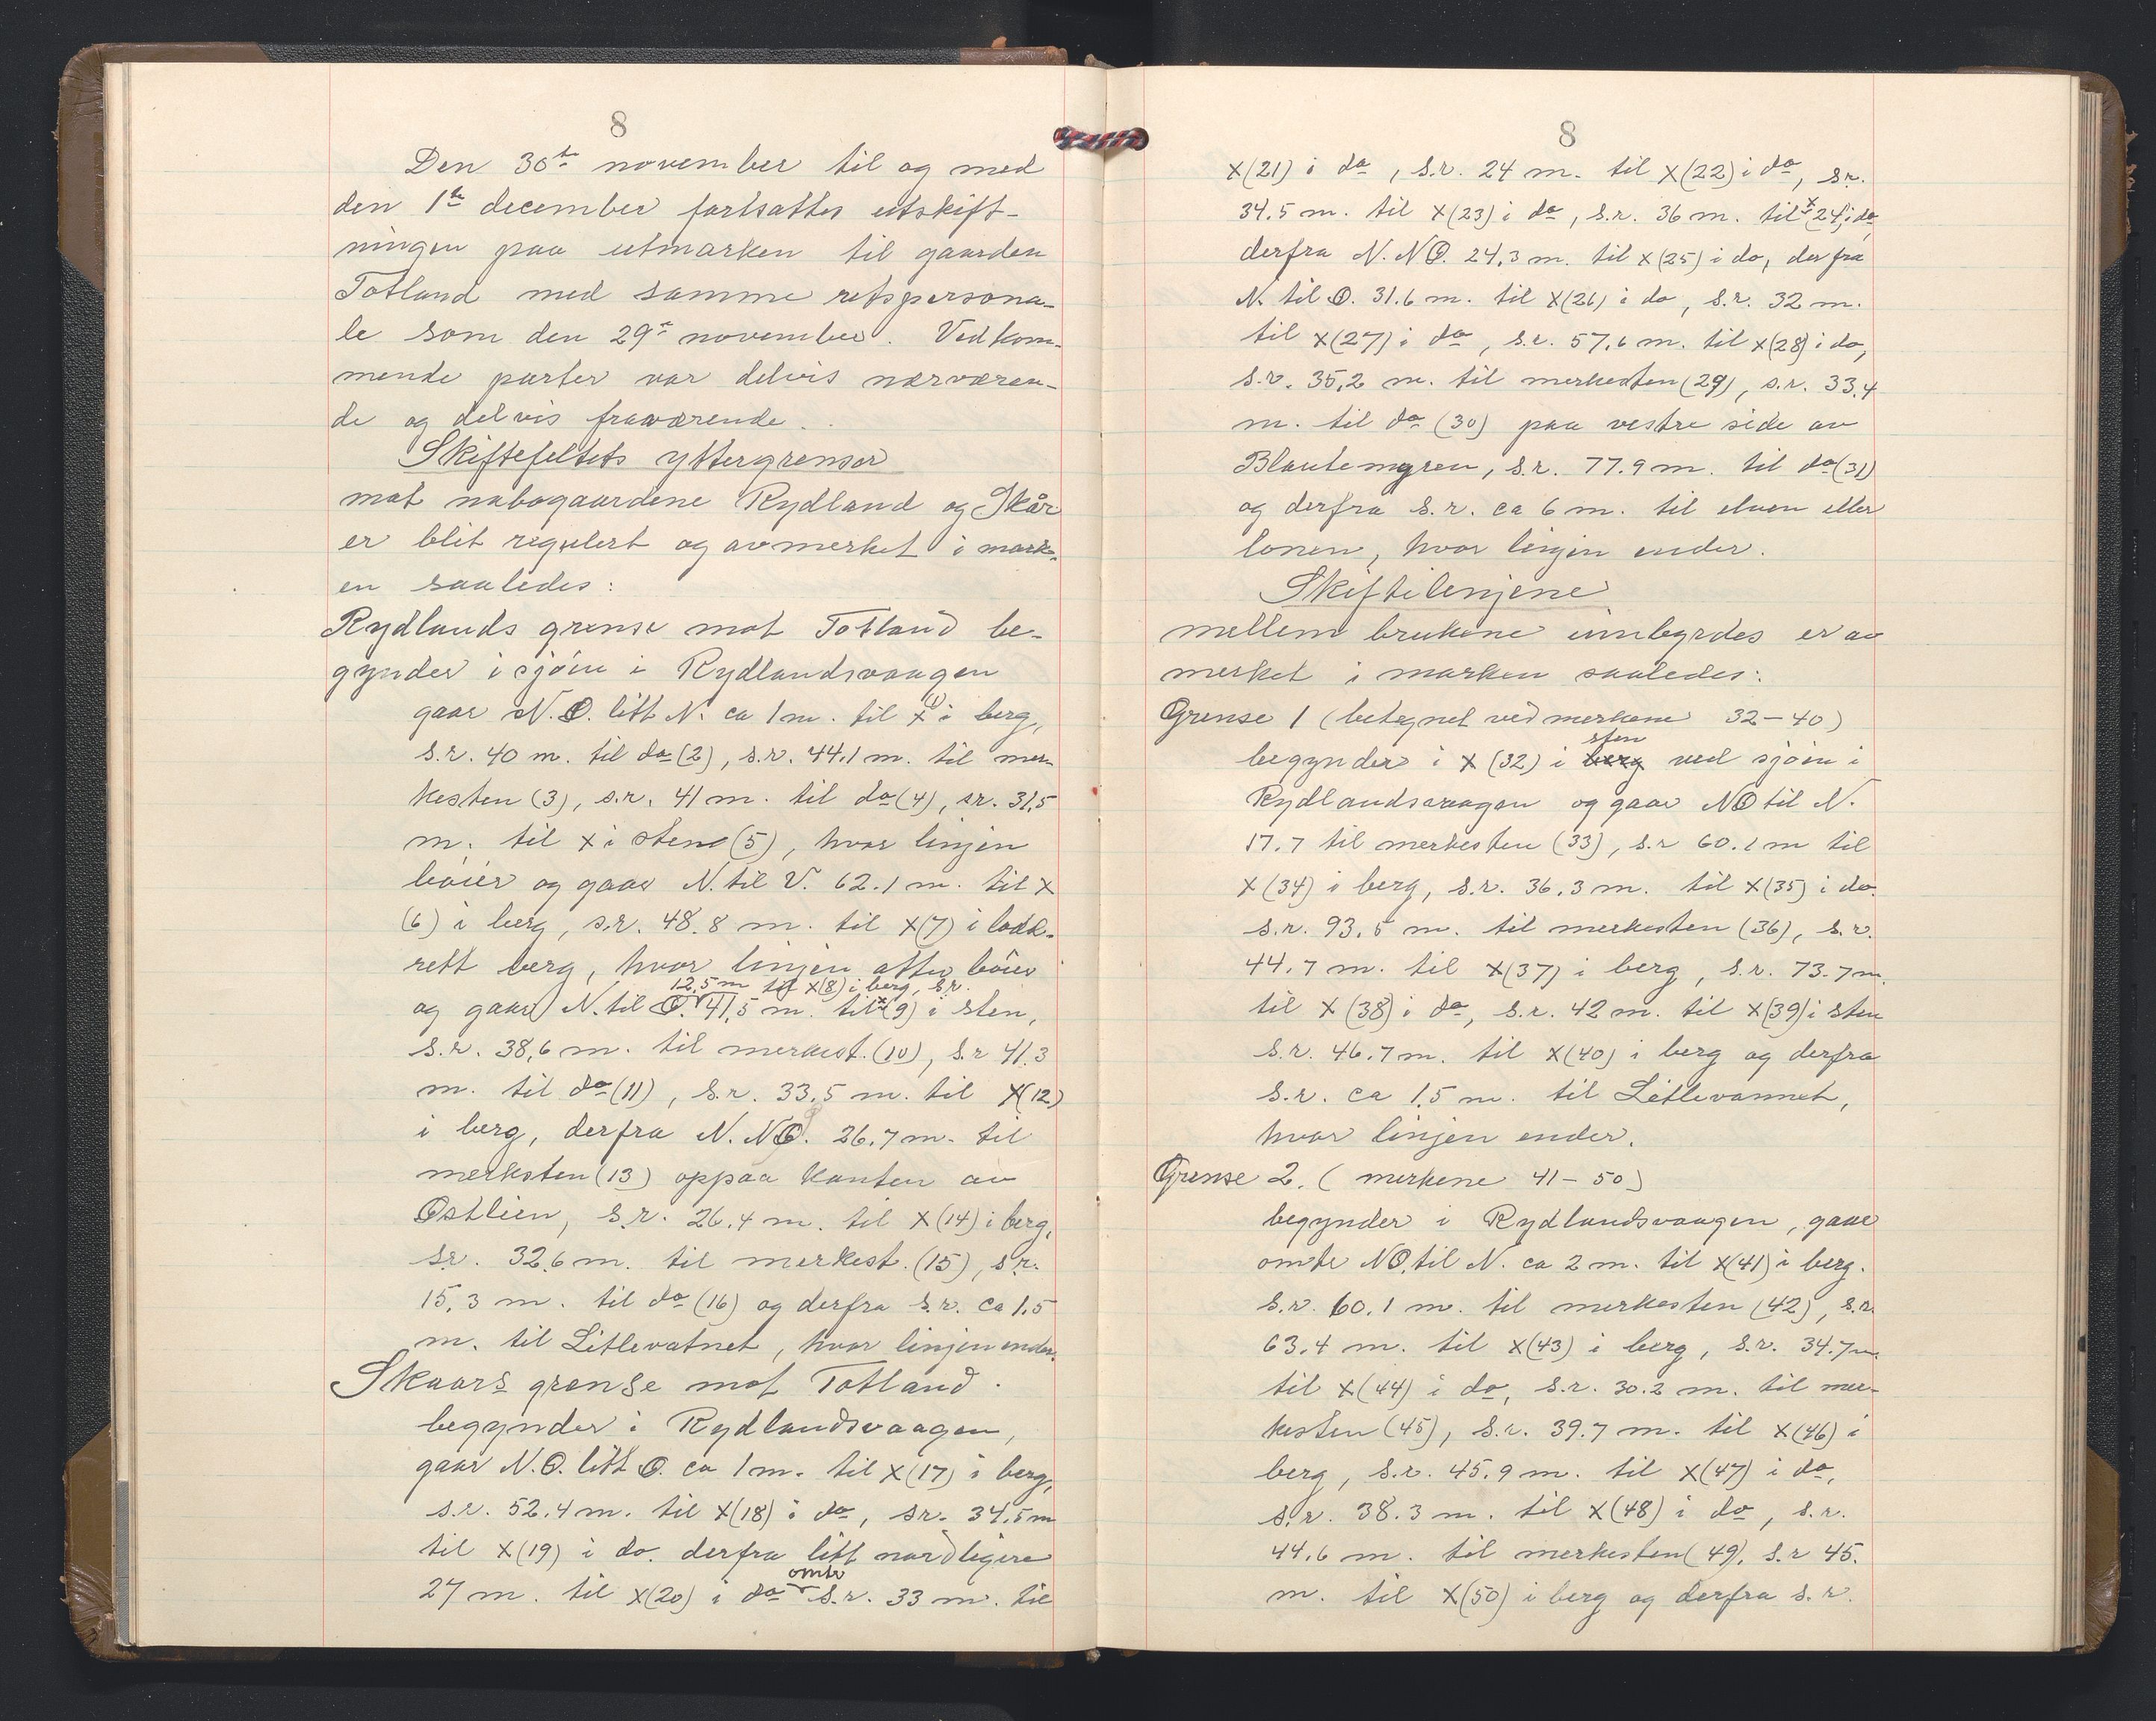 8
Den 30te november til og med
den 1te december fortsattes utskift-
ningen paa utmarken til gaarden
Totland med samme retspersona-
le som den 29de november. Vedkom-
mende parter var delvis nærværen-
de og delvis fraværende.
Skiftefeltets yttergrenser
mot nabogaardene Rydland og Skår
er blit regulert og avmerket i mark-
en saaledes:
Rydlands grense mot Totland be-
gynder i sjöen i Rydlandsvaagen
gaar N.O. litt N. ca 1 m. til x (1) i berg,
s.r. 40 m. til do (2), s.r. 44.1 m. til mer-
kesten (3), s.r. 41 m. til do (4), s.r. 31,5
m. til x i sten (5), hvor linjen
böier og gaar N. til V. 62.1 m. til x
(6) i berg, s.r. 48.8 m. til x (7) i lodd-
rett berg, hvor linjen atter böier
12,5 m til x (8) i berg, s.r.
og gaar N. til O. 41,5 m. til x (9) i sten,
s.r. 38,6 m. til merkest. (10), s.r 41.3
m. til do (11), s.r. 33,5 m. til x (12)
i berg, derfra N. NO. 26.7 m. til
merksten (13) oppaa kanten av
Ostlien, s.r. 26.4 m. til x (14) i berg,
s.r. 32.6 m. til merkest. (15), s.r.
15.3 m. til do (16) og derfra s.r. ca 1.5
m. til Litlevatnet, hvor linjen ender.
Skaars grense mot Totland.
begynder i Rydlandsvaagen,
gaar N.O. litt O. ca 1 m. til x (17) i berg,
s.r. 52.4 m. til x (18) i do, s.r. 34.5 m
til x (19) i do. derfra litt nordligere
omtr
27 m. til x (20) i do s.r. 33 m. til
8
x (21) i do, s.r. 24 m. til x (22) i do, s.r.
34.5 m. til x (23) i do, s.r. 36 m. til x (24) i do
derfra N. NO. 24.3 m. til x (25) i do, derfra
N. til O. 31.6 m. til x (26) i do, s.r. 32 m.
til x (27) i do, s.r. 57.6 m. til x (28) i do,
s.r. 35,2 m. til merkesten (29), s.r. 33.4
m. til do (30) paa vestre side av
Blautemyren, s.r. 77.9 m. til do (31)
og derfra s.r. ca 6 m. til elven eller
lonen, hvor linjen ender.
Skiftelinjene
mellem brukene innbyrdes er av
merket i marken saaledes:
Grense 1 (betegnet ved merkene 32 - 40)
sten
begynder i x (32) i berg ved sjöen i
Rydlandsvaagen og gaar NO til N.
17.7 til merkesten (33), s.r 60.1 m til
x (34) i berg, s.r. 36.3 m. til x (35) i do.
s.r. 93.5 m. til merkesten (36), s.r.
44.7 m. til x (37) i berg, s.r. 73.7 m.
til x (38) i do, s.r. 42 m. til x (39) i sten
s.r. 46.7 m. til x (40) i berg og derfra
s.r. ca 1.5 m. til Litlevannet,
hvor linjen ender.
Grense 2. (merkene 41 - 50)
begynder i Rydlandsvaagen, gaar
omtr NO. til N. ca 2 m. til x (41) i berg.
s.r. 60.1 m. til merkesten (42), s.r.
63.4 m. til x (43) i berg, s.r. 34.7 m.
til x (44) i do, s.r. 30.2 m. til mer-
kesten (45), s.r. 39.7 m. til x (46) i
berg, s.r. 45.9 m. til x (47) i do,
s.r. 38.3 m. til x (48) i do, s.r.
44.6 m. til merkesten (49). s.r 45.
m. til x (50) i berg og derfra s.r.